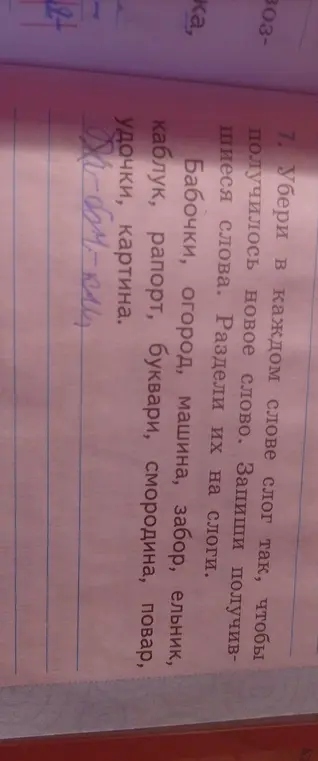 воз-
ка,
7. Убери в каждом слове слог так, чтобы
получилось новое слово. Запиши получив-
шиеся слова. Раздели их на слоги.
Бабочки, огород, машина, забор, ельник,
каблук, рапорт, буквари, смородина, повар,
удочки, картина.